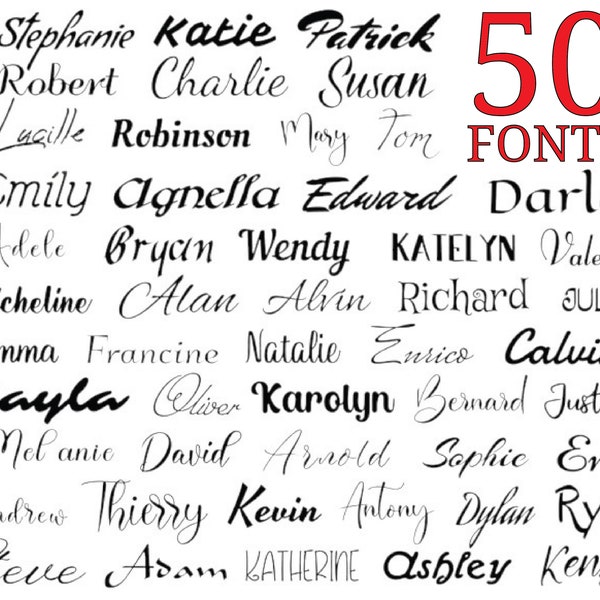 Stephanie Katie Patrick 50
Robert Charlie Susan
Lucille Robinson Mary Tom FONT
Emily Agnella Edward Darl
Adele Bryan Wendy KATELYN Vale
cheline Alan Alvin Richard JUL
mma Francine Natalie Enrico Calvi
ayla Oliver Karolyn Bernard Just
Melanie David Arnold Sophie
ndrew Thierry Kevin Antony Dylan Ry
teve Adam KATHERINE Ashley Ken